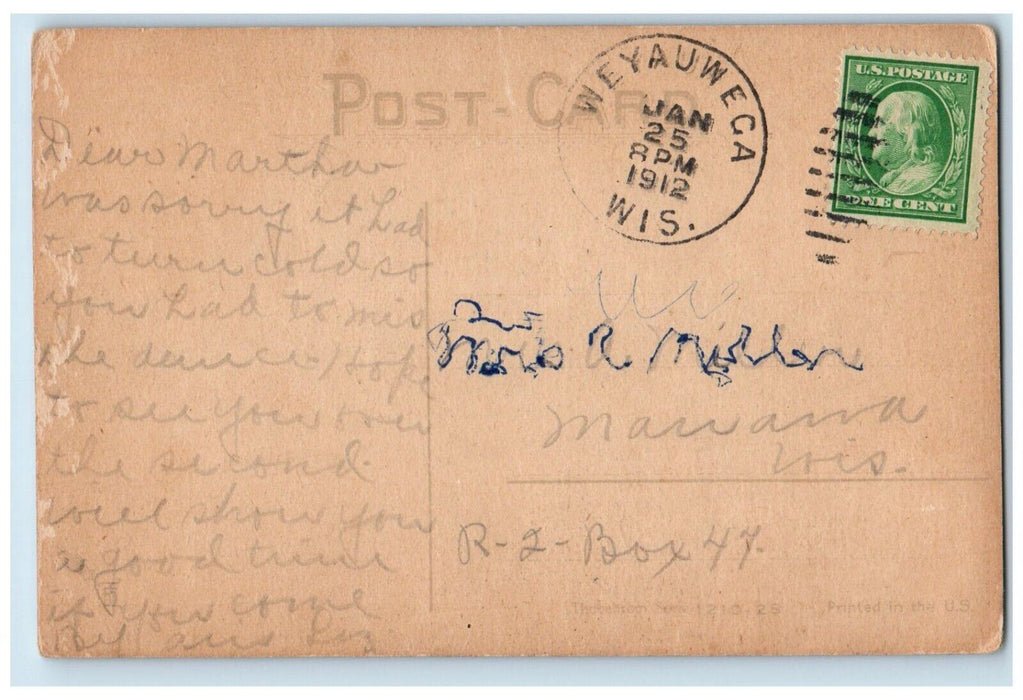 POST-CARD
WEYAUWEGA
JAN
25
8 PM
1912
WIS.
U.S. POSTAGE
ONE CENT
Dear Martha
was sorry it had
to turn cold so
you had to mis
the dance. Hope
to see you over
the second
will show you
a good time
if you come
By aus Liz
R
Manawa
Wis.
R-2-Box 47.
Series 1210-25 Printed in the U.S.